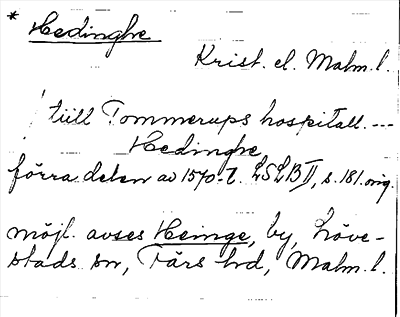 * Hedinghe
Krist. el. Malm. l.
till Tommerups hospitall. ---
Hedinghe
förra delen av 1570-t. LSLB II, s. 181. orig.
möjl. avses Heinge, by, Löve-
stads sn, Färs hd, Malm. l.